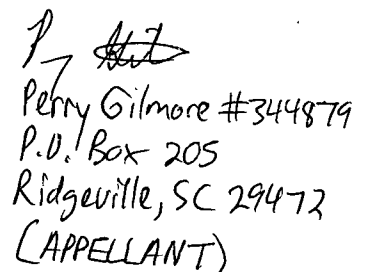 Perry Gilmore #344879
P.O. Box 205
Ridgeville, SC 29472
(APPELLANT)